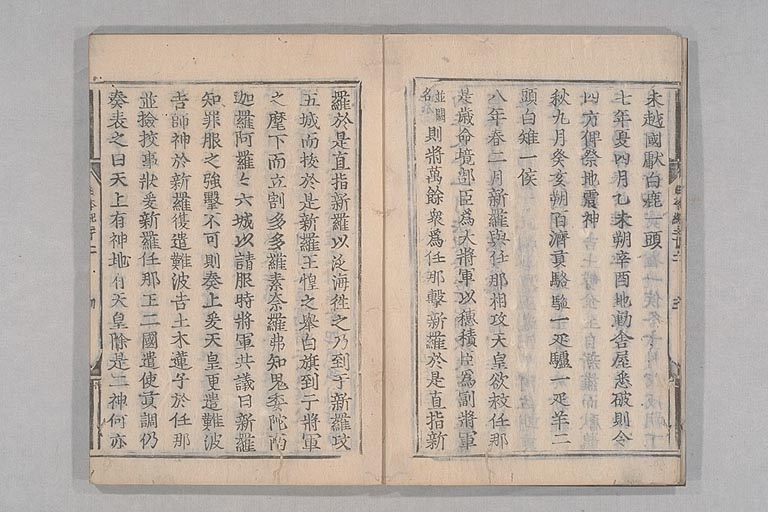 未越國獻白鹿一頭
七年夏四月乙未朔辛酉地動舍屋悉破則令
四方俾祭地震神
秋九月癸亥朔百濟貢駱駝一疋驢一疋羊二
頭白雉一侯
八年春二月新羅與任那相攻天皇欲救任那
是歲命境部臣爲大將軍以穗積臣爲副將軍
並闕名
則將萬餘衆爲任那擊新羅於是直指新
羅於是直指新羅以泛海往之乃到于新羅攻
五城而拔於是新羅王惶之舉白旗到于將軍
之麾下而立割多多羅素奈羅弗知鬼委陀南
迦羅阿羅々六城以請服時將軍共議曰新羅
知罪服之強擊不可則奏上爰天皇更遣難波
吉師神於新羅復遣難波吉士木蓮子於任那
並撿挍事狀爰新羅任那王二國遣使貢調仍
奏表之曰天上有神地有天皇除是二神何亦